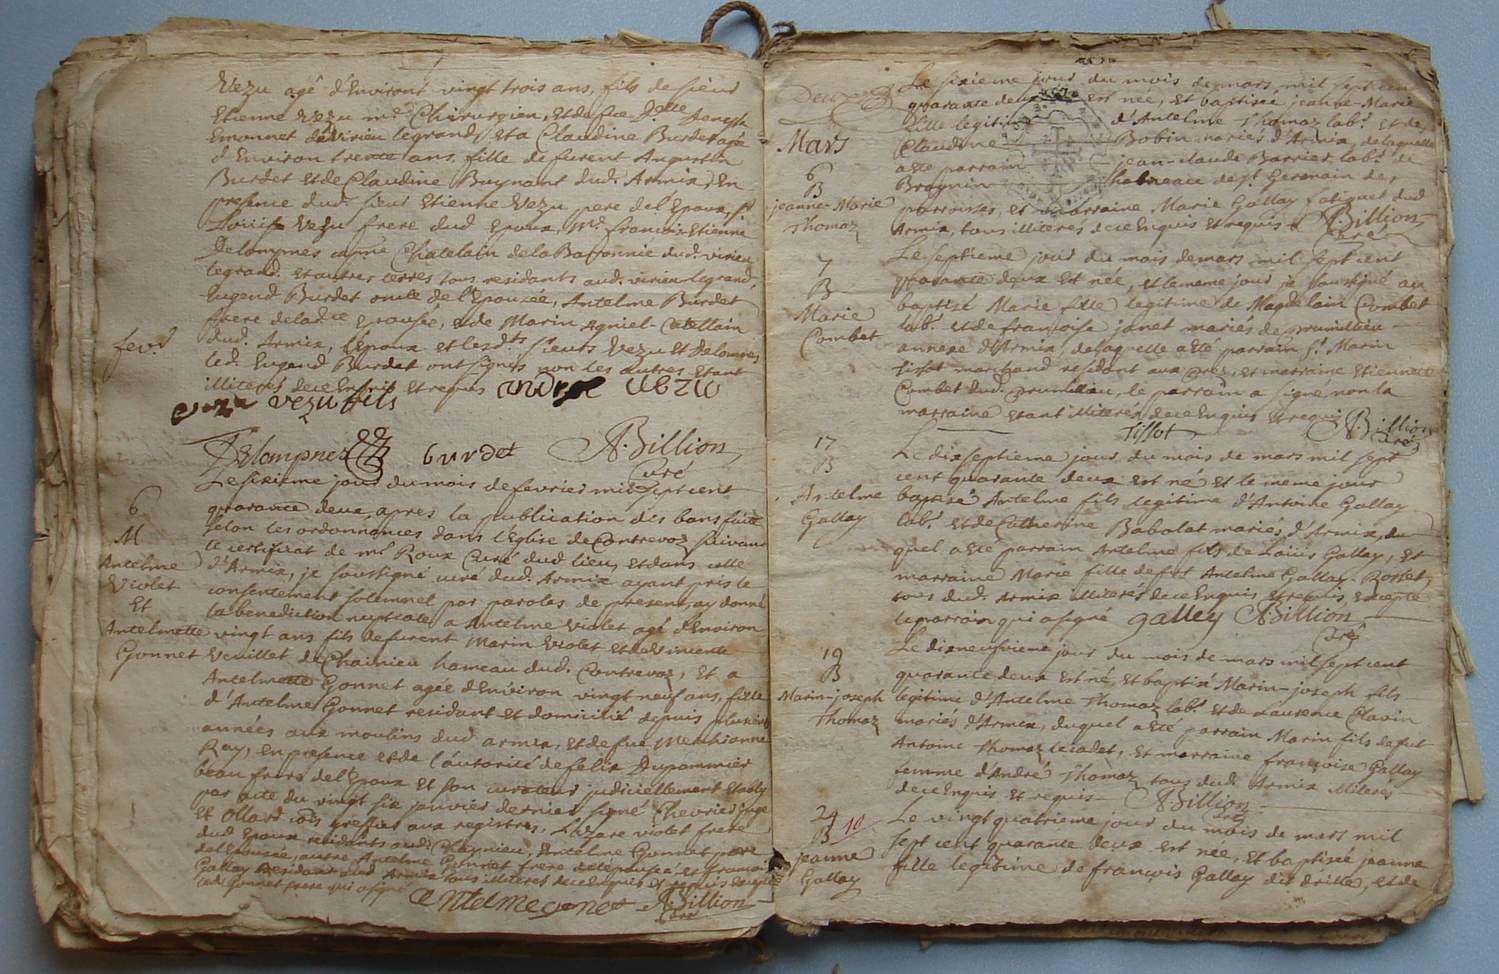 Vezu agé d'Environt vingt trois ans, fils de sieur
Etienne Vezu Chirurgien, Et de
Emonnet de Virieu le grand, Et a Claudine Burdet agée
d'Environ trente ans, fille de furent Augustin
Burdet Et de Claudine Buynant dud. Armix, En
presence dud. sieur Etienne Vezu pere de l'Epoux, sr
Vezu frere dud. Epoux, Mr. francois Etienne
Delompnes Chatelain de la Baronnie dud. virieu
legrand. Et autres terres tous residants aud. virieu legrand,
Eugend Burdet oncle de l'Epousée, Antelme Burdet
frere de lad. Epousée, Et de Marin Agniel-Catellain
fevr
dud. Armix, l'Epoux et lesd. sieurs Vezu Et Delompnes
led. Eugend Burdet ont signés non les autres Etant
illiterés de ce Enquis Et requis andre vezu
vezu vezu fils
Delompnes burdet A. Billion
curé
Le sixieme jour du mois de fevrier mil sept cent
6
quarante deux, apres la publication des bans faite
M
selon les ordonnances dans l'Eglise de Contrevoz suivant
le certificat de mr Roux Curé dud. lieu, et dans celle
Antelme
d'Armix, je soussigné curé dud. Armix ayant pris le
Violet
consentement solemnel par paroles de present, ay donné
Et
la benediction nuptiale a Antelme Violet agé d'Environ
Antelmette
vingt ans fils de furent Marin Violet et
Gonnet
Veuillet de hameau dud. Contrevoz, Et a
Antelmette Gonnet agée d'Environ vingt neuf ans, fille
d'Antelme Gonnet residant et domicilié depuis plusieurs
années aux moulins dud. armix, Et de fue
Ray, En presence et de l'autorité de felix Dupommier
beau frere de l'Epoux Et son curateur judiciellement Etably
par acte du vingt six janvier dernier signé Chevrier juge
Et greffier aux registres, Lazare violet frere
dud. Epoux residants aud. Antelme Gonnet pere
de l'Epousée, autre Antelme Gonnet frere de l'Epousée et francois
Gallay residant aud. Armix tous illiterés de ce Enquis Et requis Excepté
led. Gonnet frere qui a signé
antelme gonet A. Billion
curé
Le sixieme jour du mois de mars mil sept cent
quarante deux est née, Et baptisée jeanne-Marie
Mars
fille legitime d'Antelme Thomaz labr. Et de
Claudine Bobin mariés d'Armix, de laquelle
6
a eté parrain jean-claude Barrier labr. de
B
Braynin de st. Germain des
jeanne-Marie
parroisses, et marraine Marie Gallay dud.
Thomaz
Armix, tous illiterés de ce Enquis Et requis A. Billion
curé
7
Le septieme jour du mois de mars mil sept cent
B
quarante deux Est née, Et le meme jour je soussigné ay
Marie
baptisé Marie fille legitime de Magdelain Combet
Combet
labr. Et de francoise janet mariés de premillieu
annexe d'Armix, de laquelle a eté parrain sr. Marin
Tissot marchand residant aux Et marraine Etiennette
Combet dud. premillieu, le parrain a signé, non la
marraine Etant illiterée de ce Enquis Et requis
Tissot A. Billion
curé
17
Le dix septieme jour du mois de mars mil sept
B
cent quarante deux Est né Et le meme jour
Antelme
baptisé Antelme fils legitime d'Antoine Gallay
Gallay
labr. et de Catherine Babolat mariés d'Armix, du
quel a eté parrain Antelme fils de Louis Gallay, Et
marraine Marie fille de fut Antelme Gallay
tous dud. Armix illiterés de ce Enquis Et requis Excepté
le parrain qui a signé galley A. Billion
curé
19
Le dix neuvieme jour du mois de mars mil sept cent
B
quarante deux Est né, Et baptisé Marin-joseph fils
Marin-joseph
legitime d'Antelme Thomaz labr. Et de Laurence Clavin
Thomaz
mariés d'Armix, duquel a eté parrain Marin fils de fut
Antoine Thomaz le cadet, Et marraine francoise Gallay
femme d'André Thomaz tous dud. Armix illiterés
de ce Enquis Et requis A. Billion
curé
24
Le vingt quatrieme jour du mois de mars mil
B 10
sept cent quarante deux Est née, Et baptisée jeanne
jeanne
fille legitime de francois Gallay dit drille, Et de
Gallay